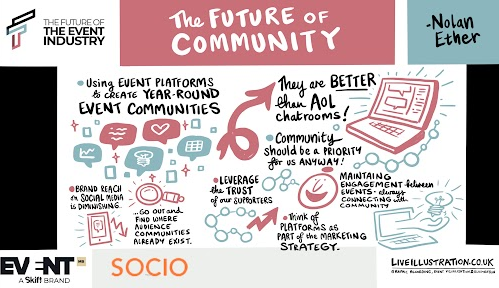 THE FUTURE OF
THE EVENT
INDUSTRY
The FUTURE OF
COMMUNITY
-Nolan
Ether
USING EVENT PLATFORMS
to CREATE YEAR-ROUND
EVENT COMMUNITIES
They are BETTER
than AOL
chatrooms!
Community
should be a PRIORITY
for US ANYWAY!
BRAND REACH
on SOCIAL MEDIA
is DIMINISHING...
...GO OUT and
FIND WHERE
AUDIENCE
COMMUNITIES
ALREADY EXIST.
LEVERAGE
the TRUST
of our SUPPORTERS
MAINTAINING
ENGAGEMENT between
EVENTS - always
CONNECTING with
COMMUNITY
Think of
PLATFORMS AS
PART OF the MARKETING
STRATEGY.
EVENT MB
A Skift BRAND
SOCIO
LIVEILLUSTRATION.CO.UK